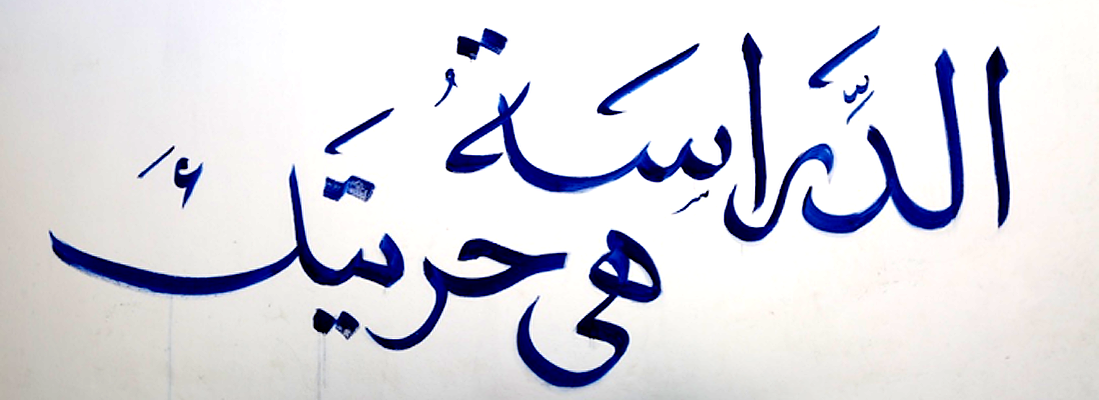 الدِّرَاسَةُ
هى حريتَك